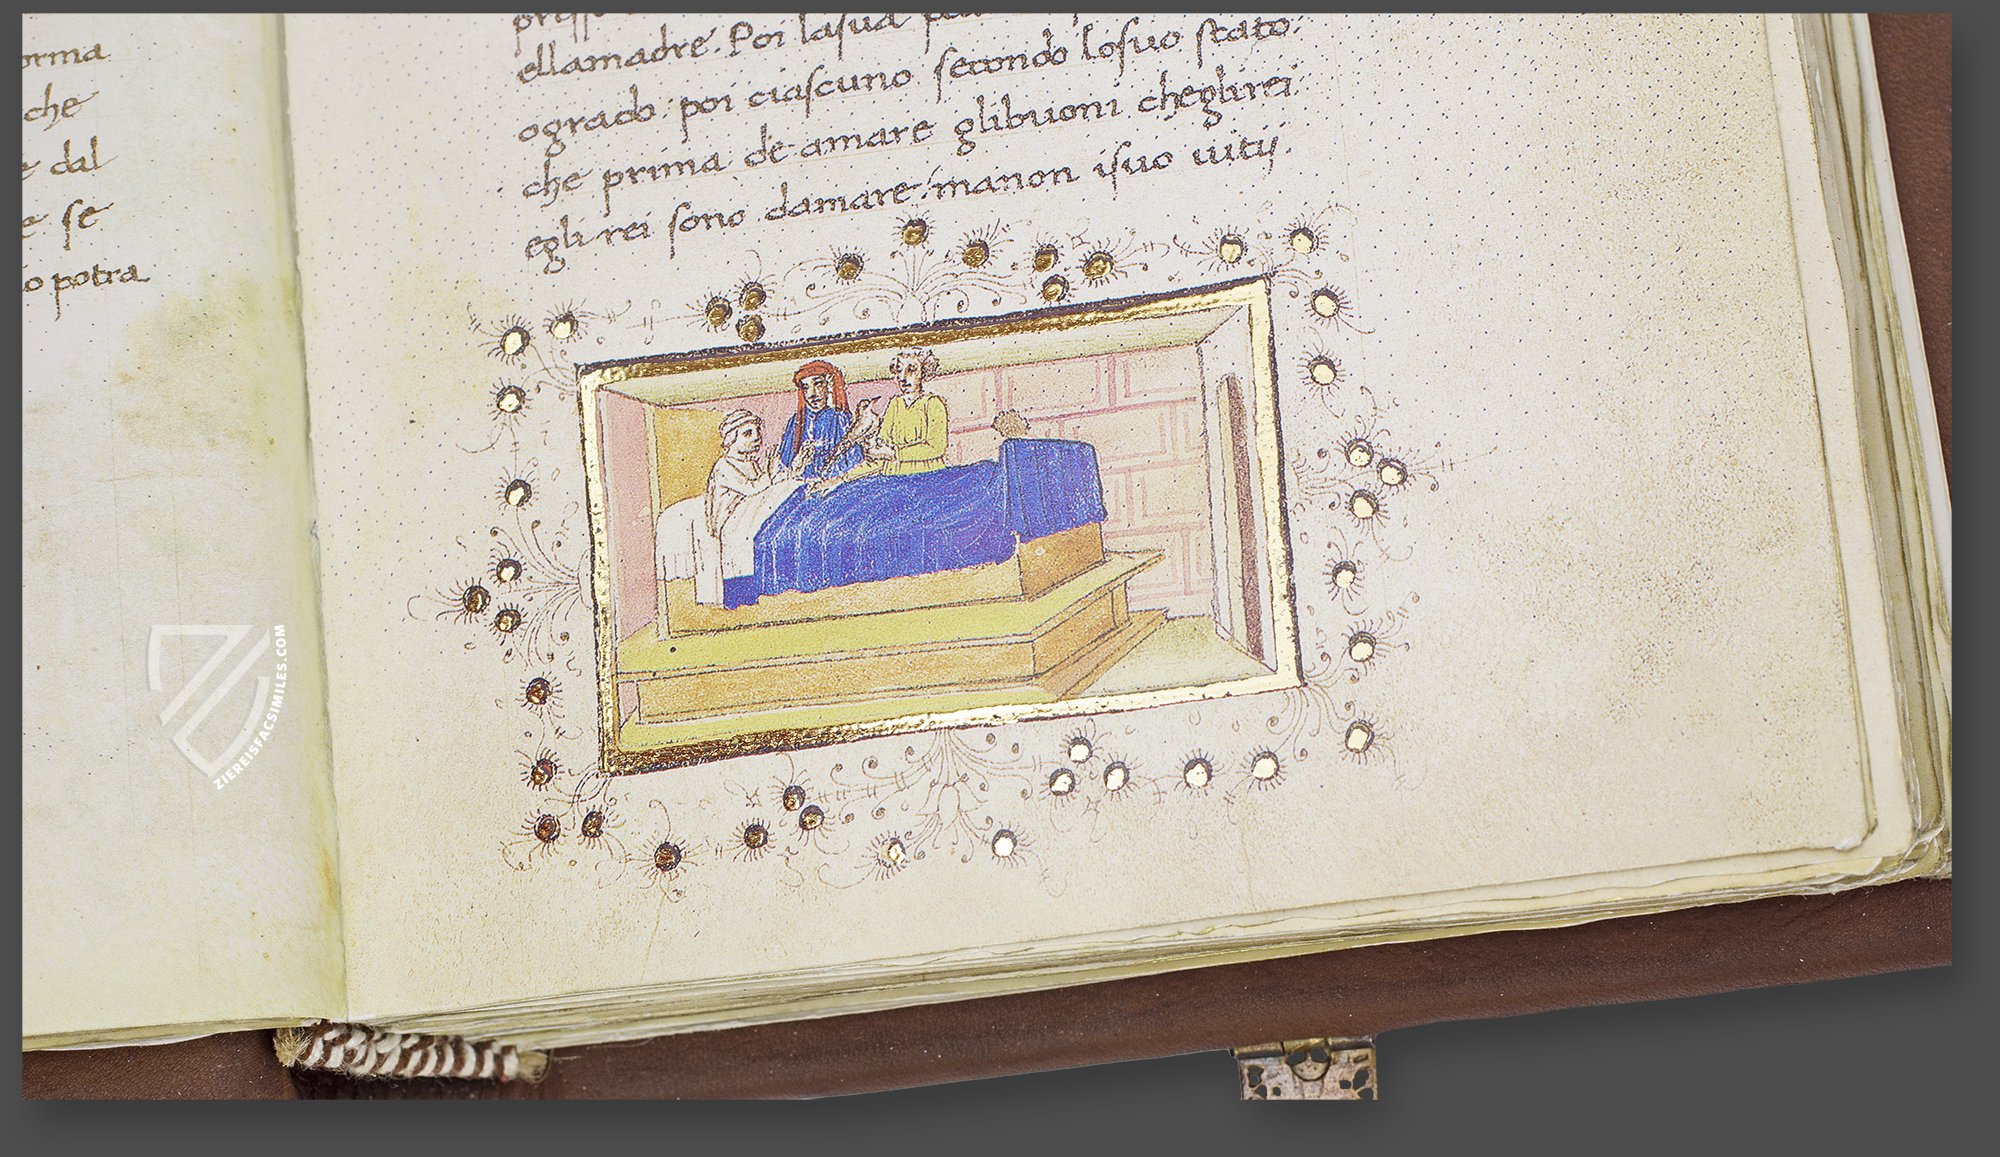 orma
che
e dal
e se
io potra
ellamadre. Poi lasua
ogrado. poi ciascuno secondo losuo stato.
che prima de amare glibuoni cheglirei
egli rei sono damare. manon isuo uitij.
ZIEREISFACSIMILES.COM